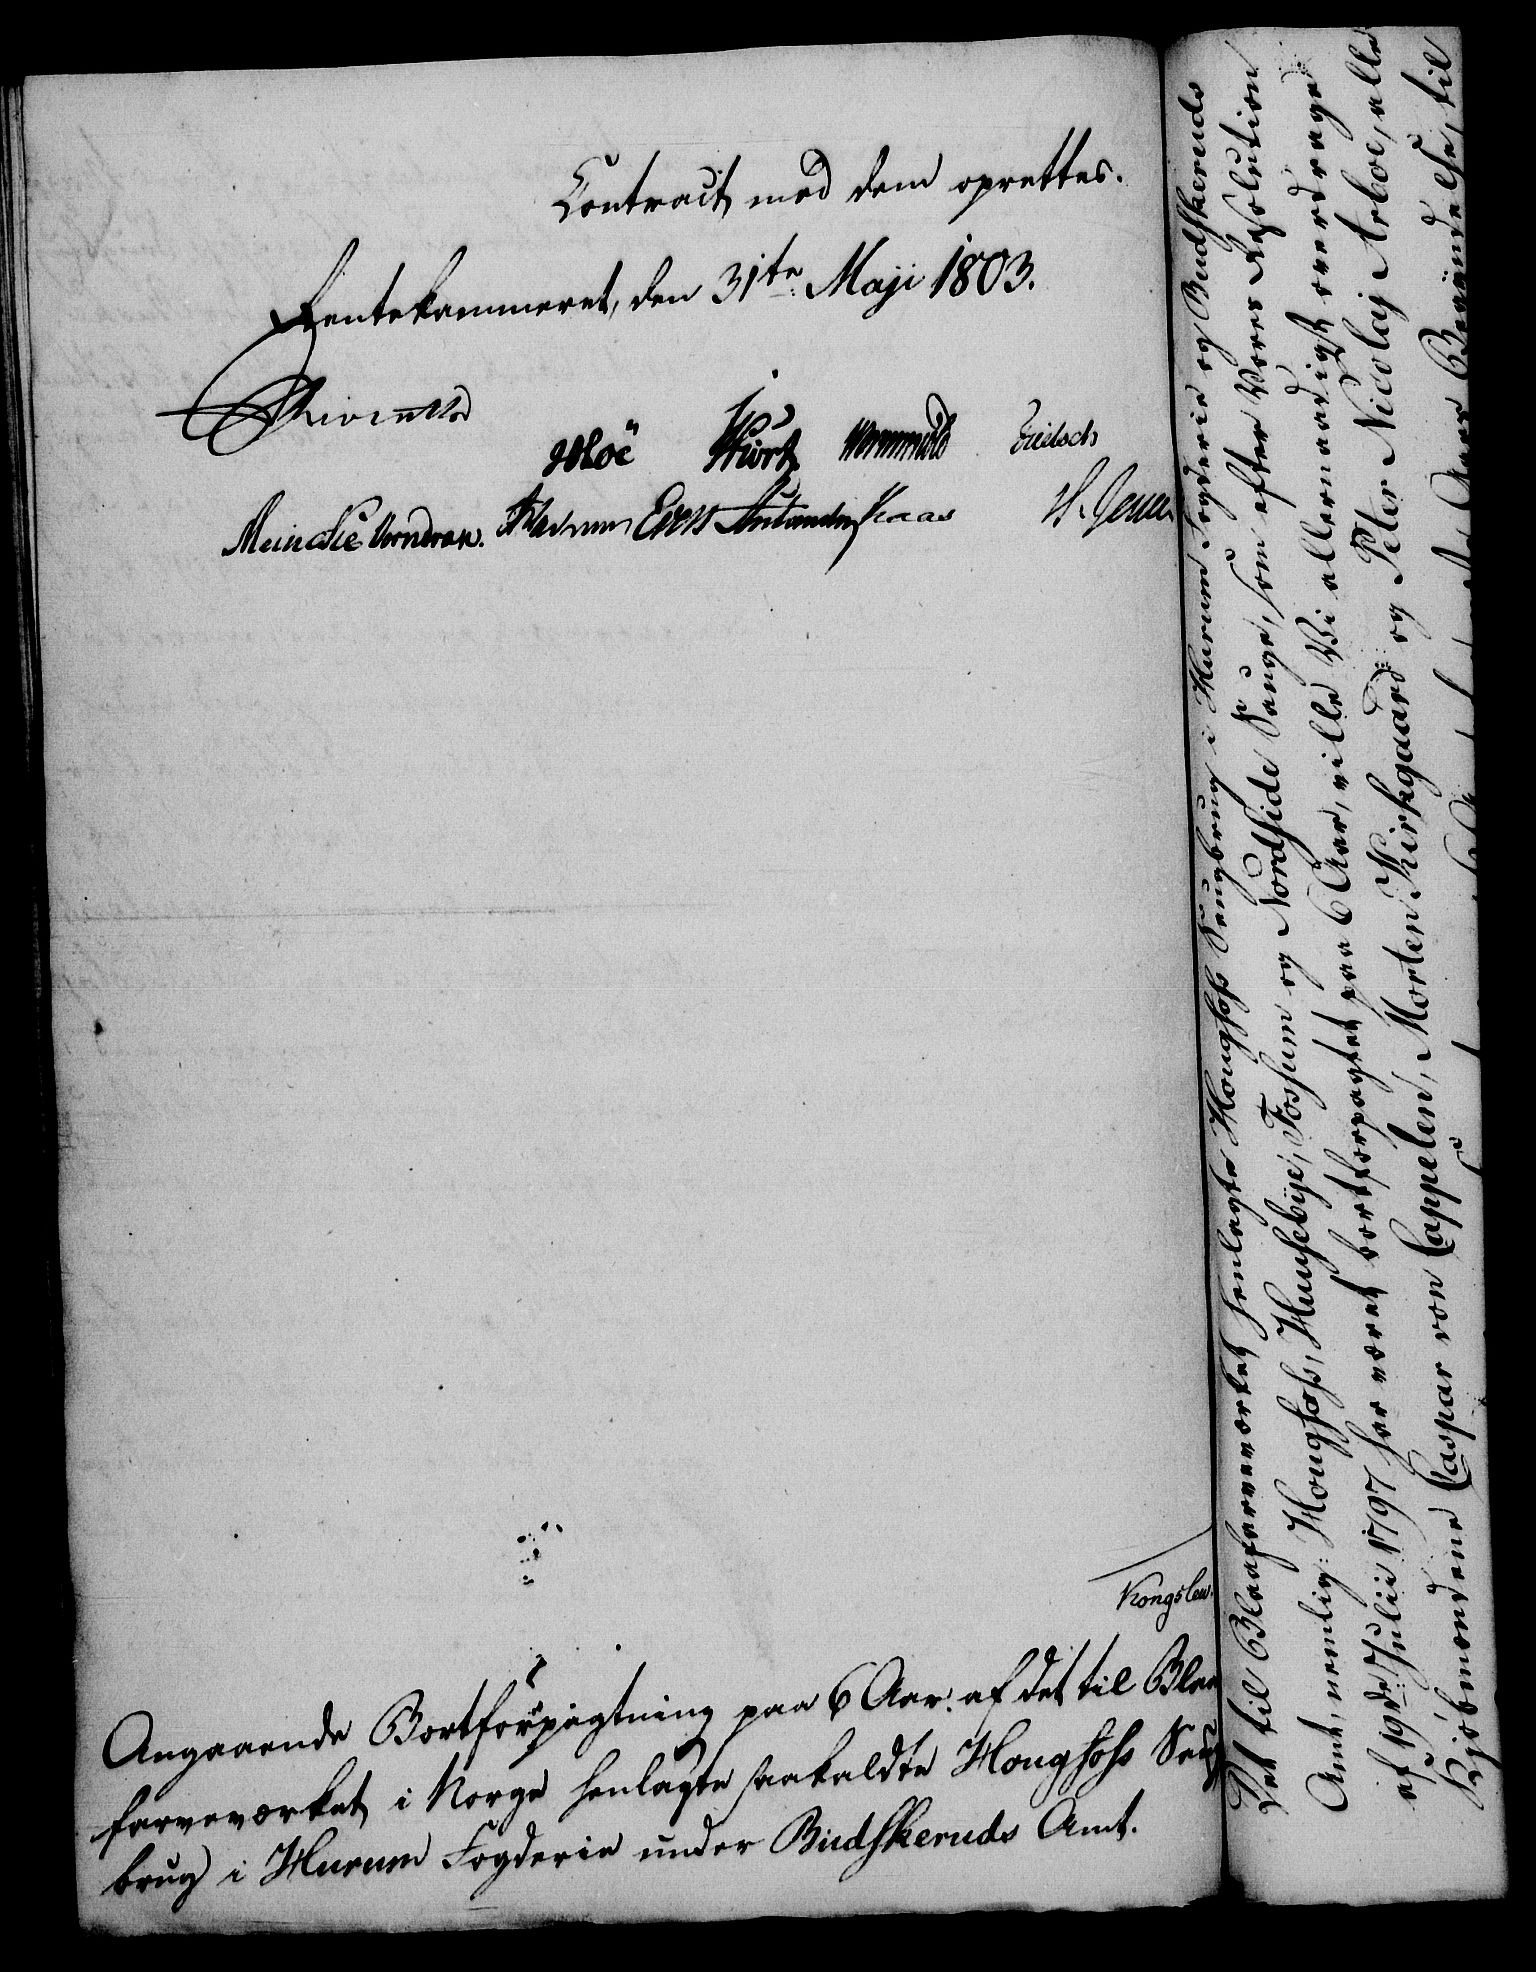 Contract med dem oprettes.
Rentekammeret, den 31te Maji 1803.
Reventlow
Hoë Wormskiold Erichsen
Meincke Vorndran. Evers Kaas
Kongslew.
Angaaende Bortforpagtning paa 6 Aar: af det til Blaa
farveværket i Norge henlagte saakaldte Hougsfoss Saug
brug i Hurum Fogderie under Budskeruds Amt.
Det til Blaafarveværket henlagte Hougsfoss Saugbrug i Hurum Fogderie og Budskeruds
Amt, nemlig: Hougsfoss, Huusebÿe, Fossum og Nordside Sauge, som efter Vores Resolution
af 19de Julii 1797 har været bortforpagtet paa 6 Aar, ville Vi allernaadigst overdrage
Kjøbmændene Caspar von Cappelen, Morten Kirkgaard og Peter Nicolaj Arboe, alle